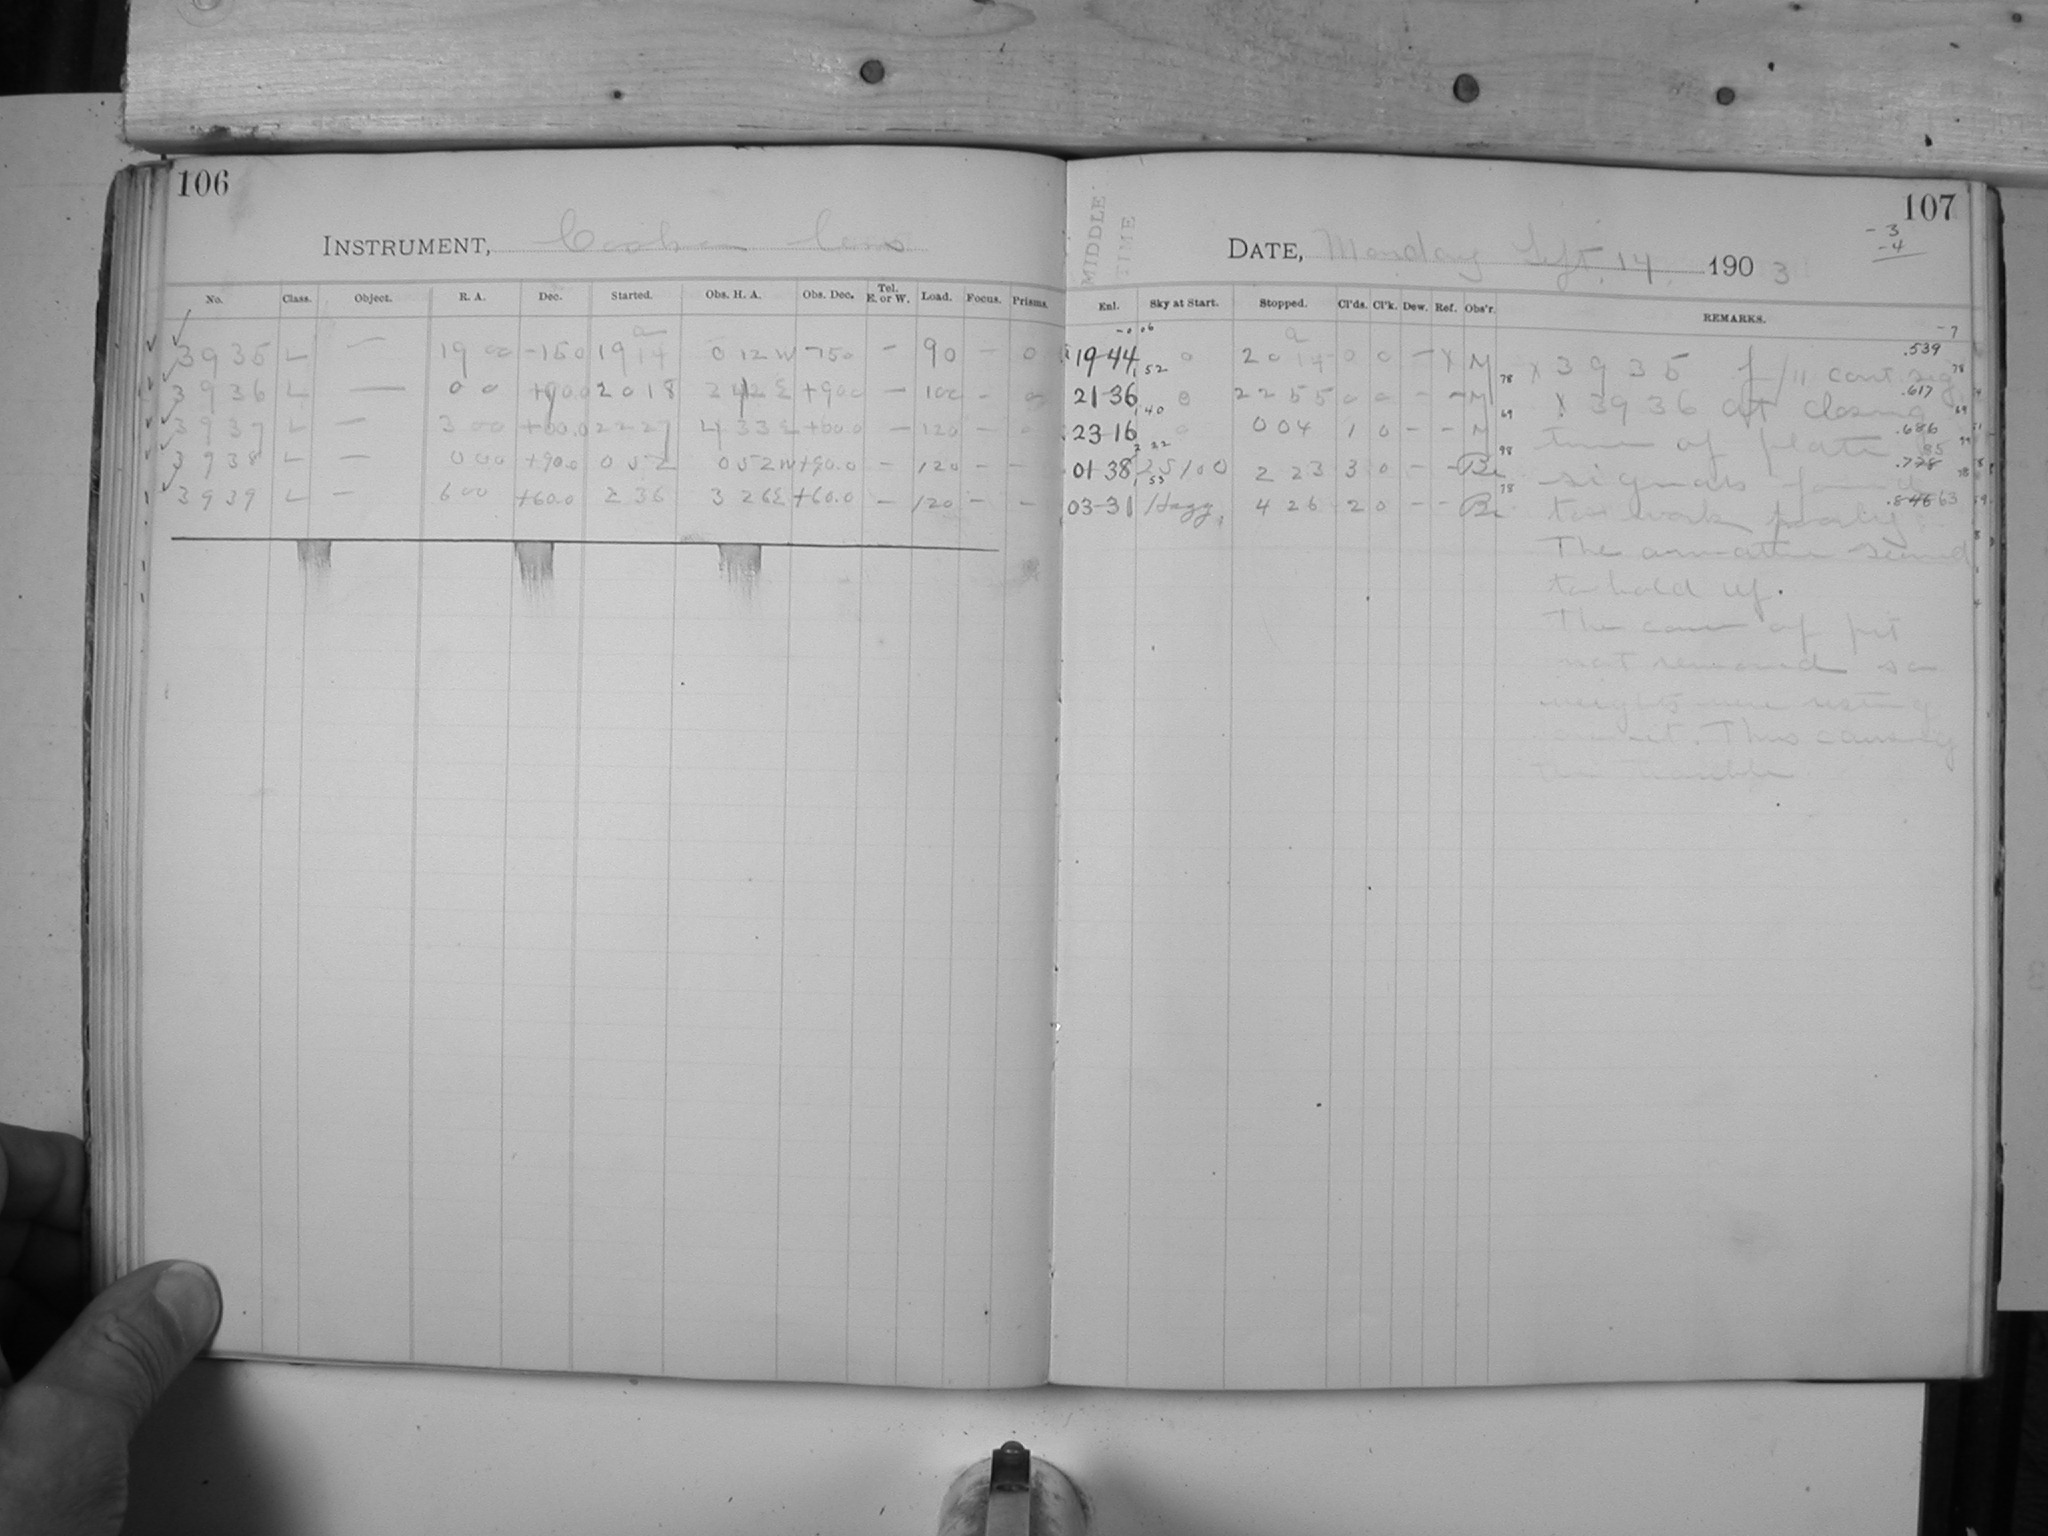 106
INSTRUMENT, Cooke Lens
No. Class. Object. R. A. Dec. Started. Obs. H. A. Obs. Dec. Tel. E. or W. Load. Focus. Prisms.
3935 L — 19 00 -15.0 19 14 0 12 W -15.0 — 90 — 0
3936 L — 0 0 +90.0 20 18 3 42 E +90.0 — 100 - 0
3937 L — 3 00 +60.0 22 27 4 33 E +60.0 — 120 - 0
3938 L — 0 00 +90.0 0 52 0 52 W +90.0 — 120 — —
3939 L — 6 00 +60.0 2 36 3 26 E +60.0 — 120 — —
107
-3
-4
MIDDLE TIME
DATE, Monday Sept. 14, 1903
Enl. Sky at Start. Stopped. Cl'ds. Cl'k. Dew. Ref. Obs'r. REMARKS.
19-44 0 20 14 0 0 — X M
21-36 0 22 55 0 0 - - M
23-16 0 0 04 1 0 - - M
01-38 25100 2 23 3 0 - - Be
03-31 Hazy, 4 26 2 0 - - Be
-7
.539
.617
.686
.778 85
.846 63
X 3935 f/11 cont sig
X 3936 at closing
time of plate
signals found
to work poorly.
The armature seemed
to hold up.
The cover of pit
not removed so
weights were resting
on it. Thus causing
the trouble